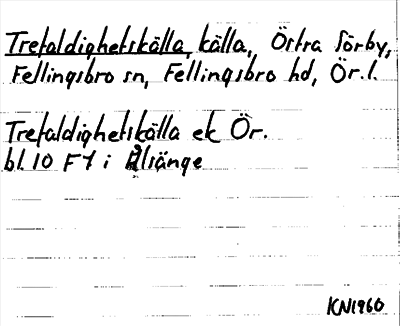 Trefaldighetskälla, källa, Östra Sörby,
Fellingsbro sn, Fellingsbro hd, Ör. l.
Trefaldighetskälla ek Ör.
bl. 10 F 7 i Älsänge
KN1960